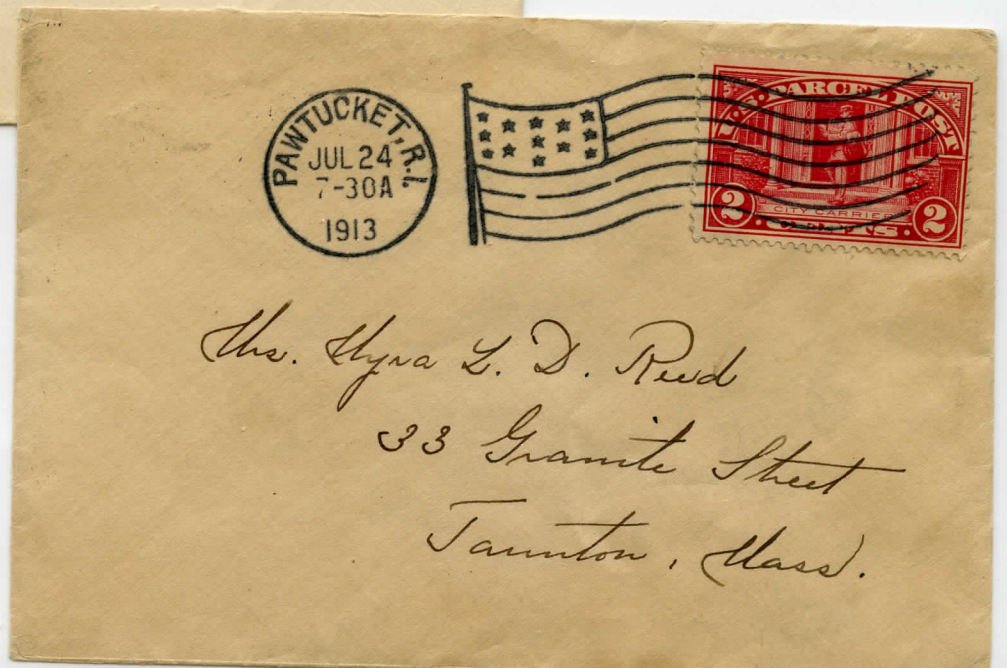 PAWTUCKET, R.I.
JUL 24
7-30A
1913
U.S. PARCEL POST
CITY CARRIER
2 CENTS 2
Mrs. Myra L. D. Reed
33 Granite Street
Taunton, Mass.